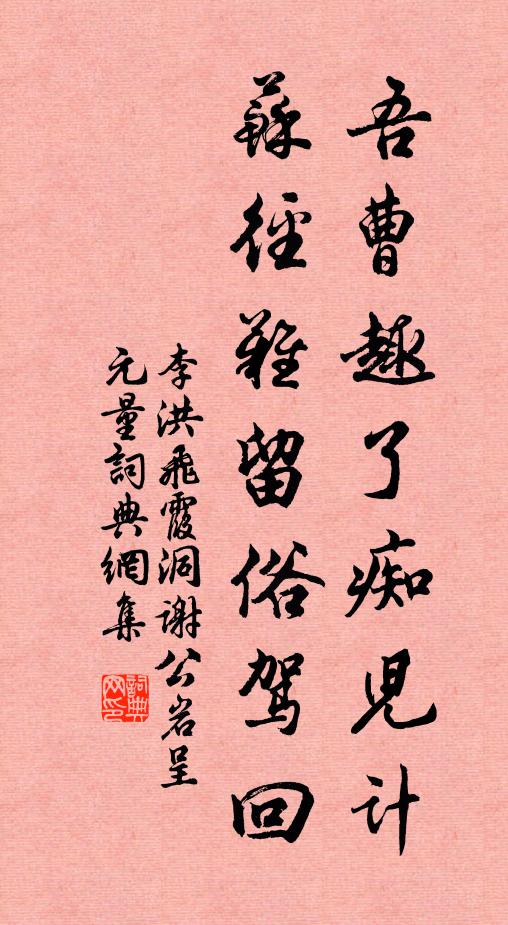 吾曹趣了痴児计
蘇径難留俗驾回
李洪飛霞洞谢公岩呈
元量詞典網集
詞典網印